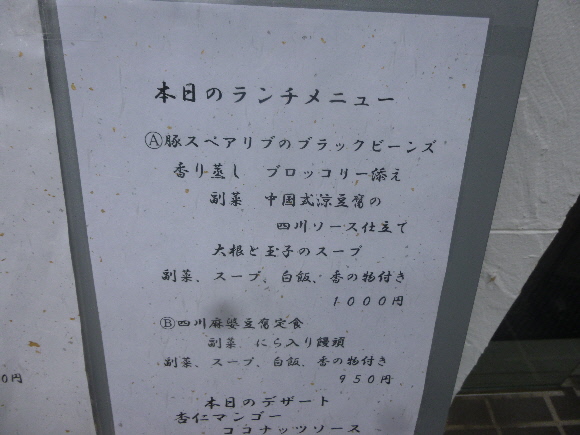 本日のランチメニュー
Ⓐ豚スペアリブのブラックビーンズ
香り蒸し ブロッコリー添え
副菜 中国式涼豆腐の
四川ソース仕立て
大根と玉子のスープ
副菜、スープ、白飯、香の物付き
1000円
Ⓑ四川麻婆豆腐定食
副菜 にら入り饅頭
副菜、スープ、白飯、香の物付き
950円
本日のデザート
杏仁マンゴー
ココナッツソース
0円